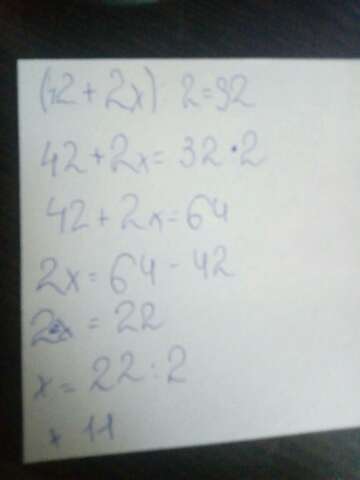 (42 + 2x) 2 = 32
42 + 2x = 32 · 2
42 + 2x = 64
2x = 64 - 42
2x = 22
x = 22 : 2
x 11